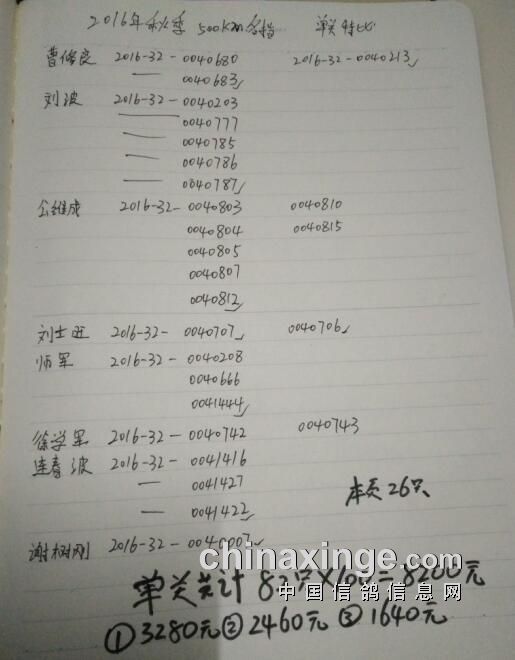 2016年秋季 500Km 单关特比
曹 良 2016-32-0040680 2016-32-0040213
— 0040683
刘波 2016-32-0040203
— 0040777
— 0040785
— 0040786
— 0040787
公维成 2016-32-0040803 0040810
0040804 0040815
0040805
0040807
0040812
刘士 2016-32-0040707 0040706
师军 2016-32-0040208
0040666
0041444
徐学军 2016-32-0040742 0040743
连春波 2016-32-0041416
— 0041427
— 0041422
本页26只
谢树刚 2016-32-0040007
chinaxinge.com
中国信鸽信息网
单关共计 82只×100=8200元
①3280元②2460元③1640元